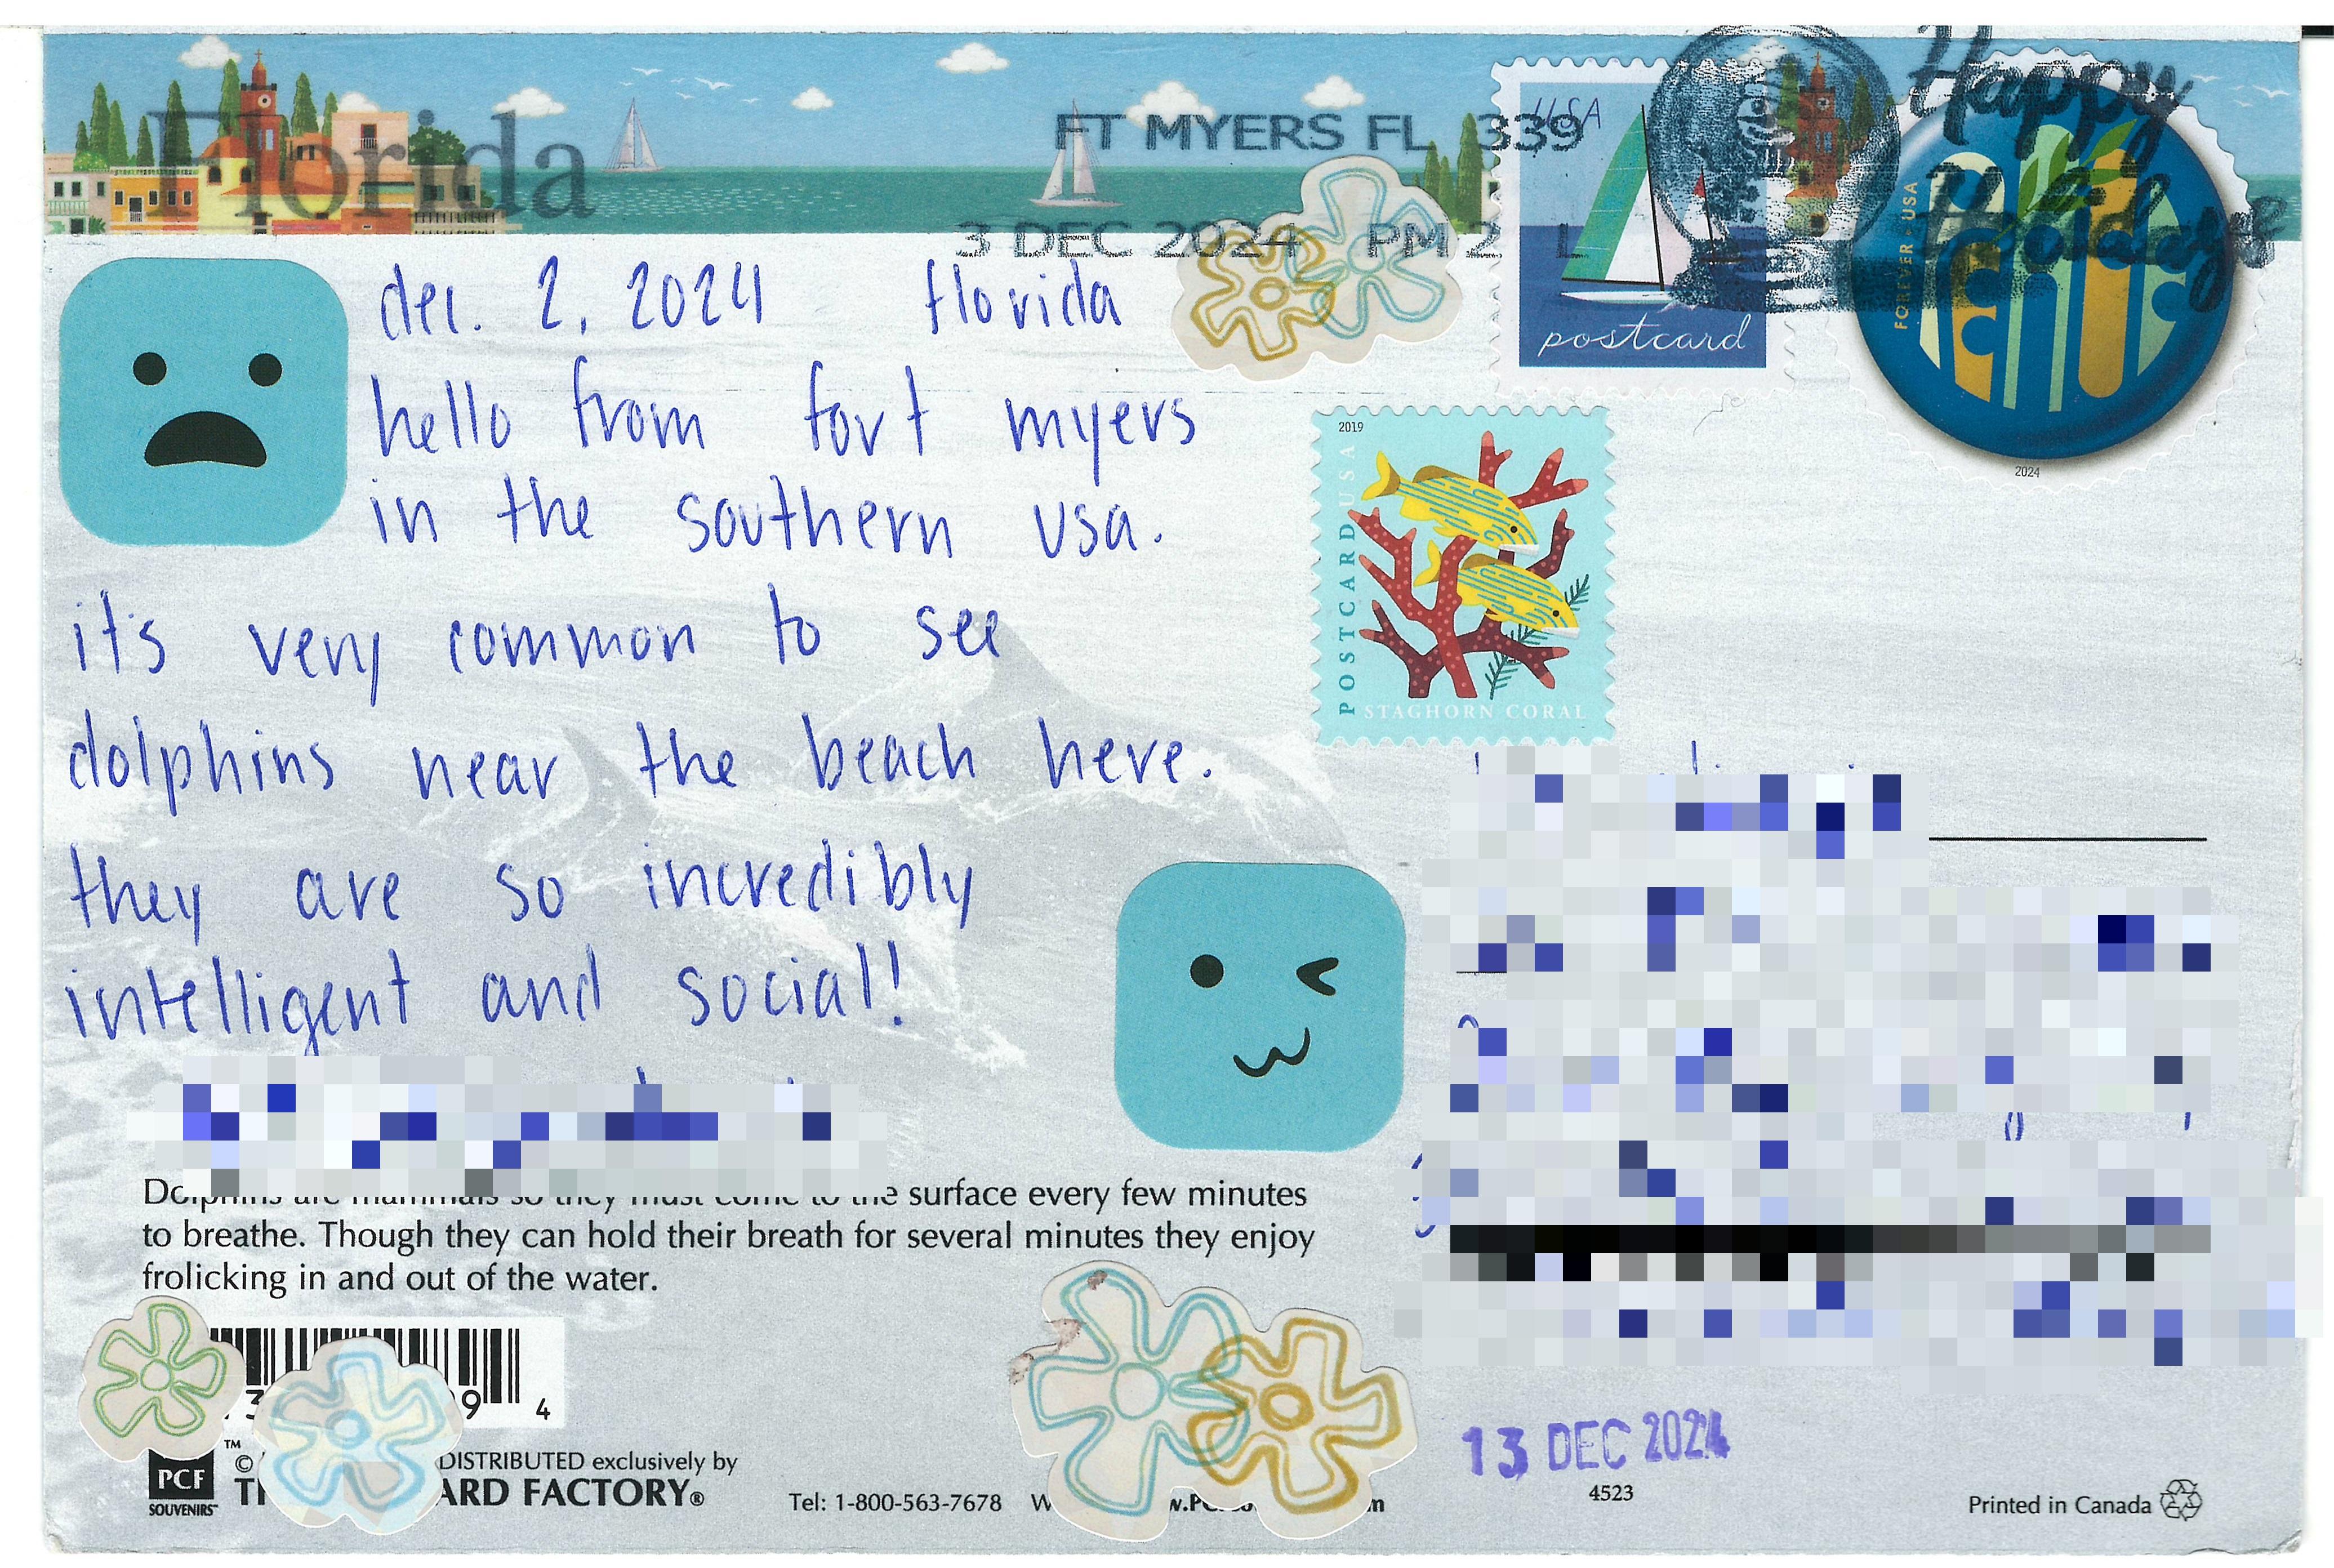 Florida
FT MYERS FL 339
3 DEC 2024 PM 2 L
Happy
Holidays
USA
postcard
FOREVER USA
2024
dec. 2, 2024 florida
hello from fort myers
in the southern usa.
it's very common to see
dolphins near the beach here.
they are so incredibly
intelligent and social!
2019
POSTCARD USA
STAGHORN CORAL
Dolphins are mammals so they must come to the surface every few minutes
to breathe. Though they can hold their breath for several minutes they enjoy
frolicking in and out of the water.
9 4
PCF
SOUVENIRS™
™
© DISTRIBUTED exclusively by
ARD FACTORY®
Tel: 1-800-563-7678
13 DEC 2024
4523
Printed in Canada